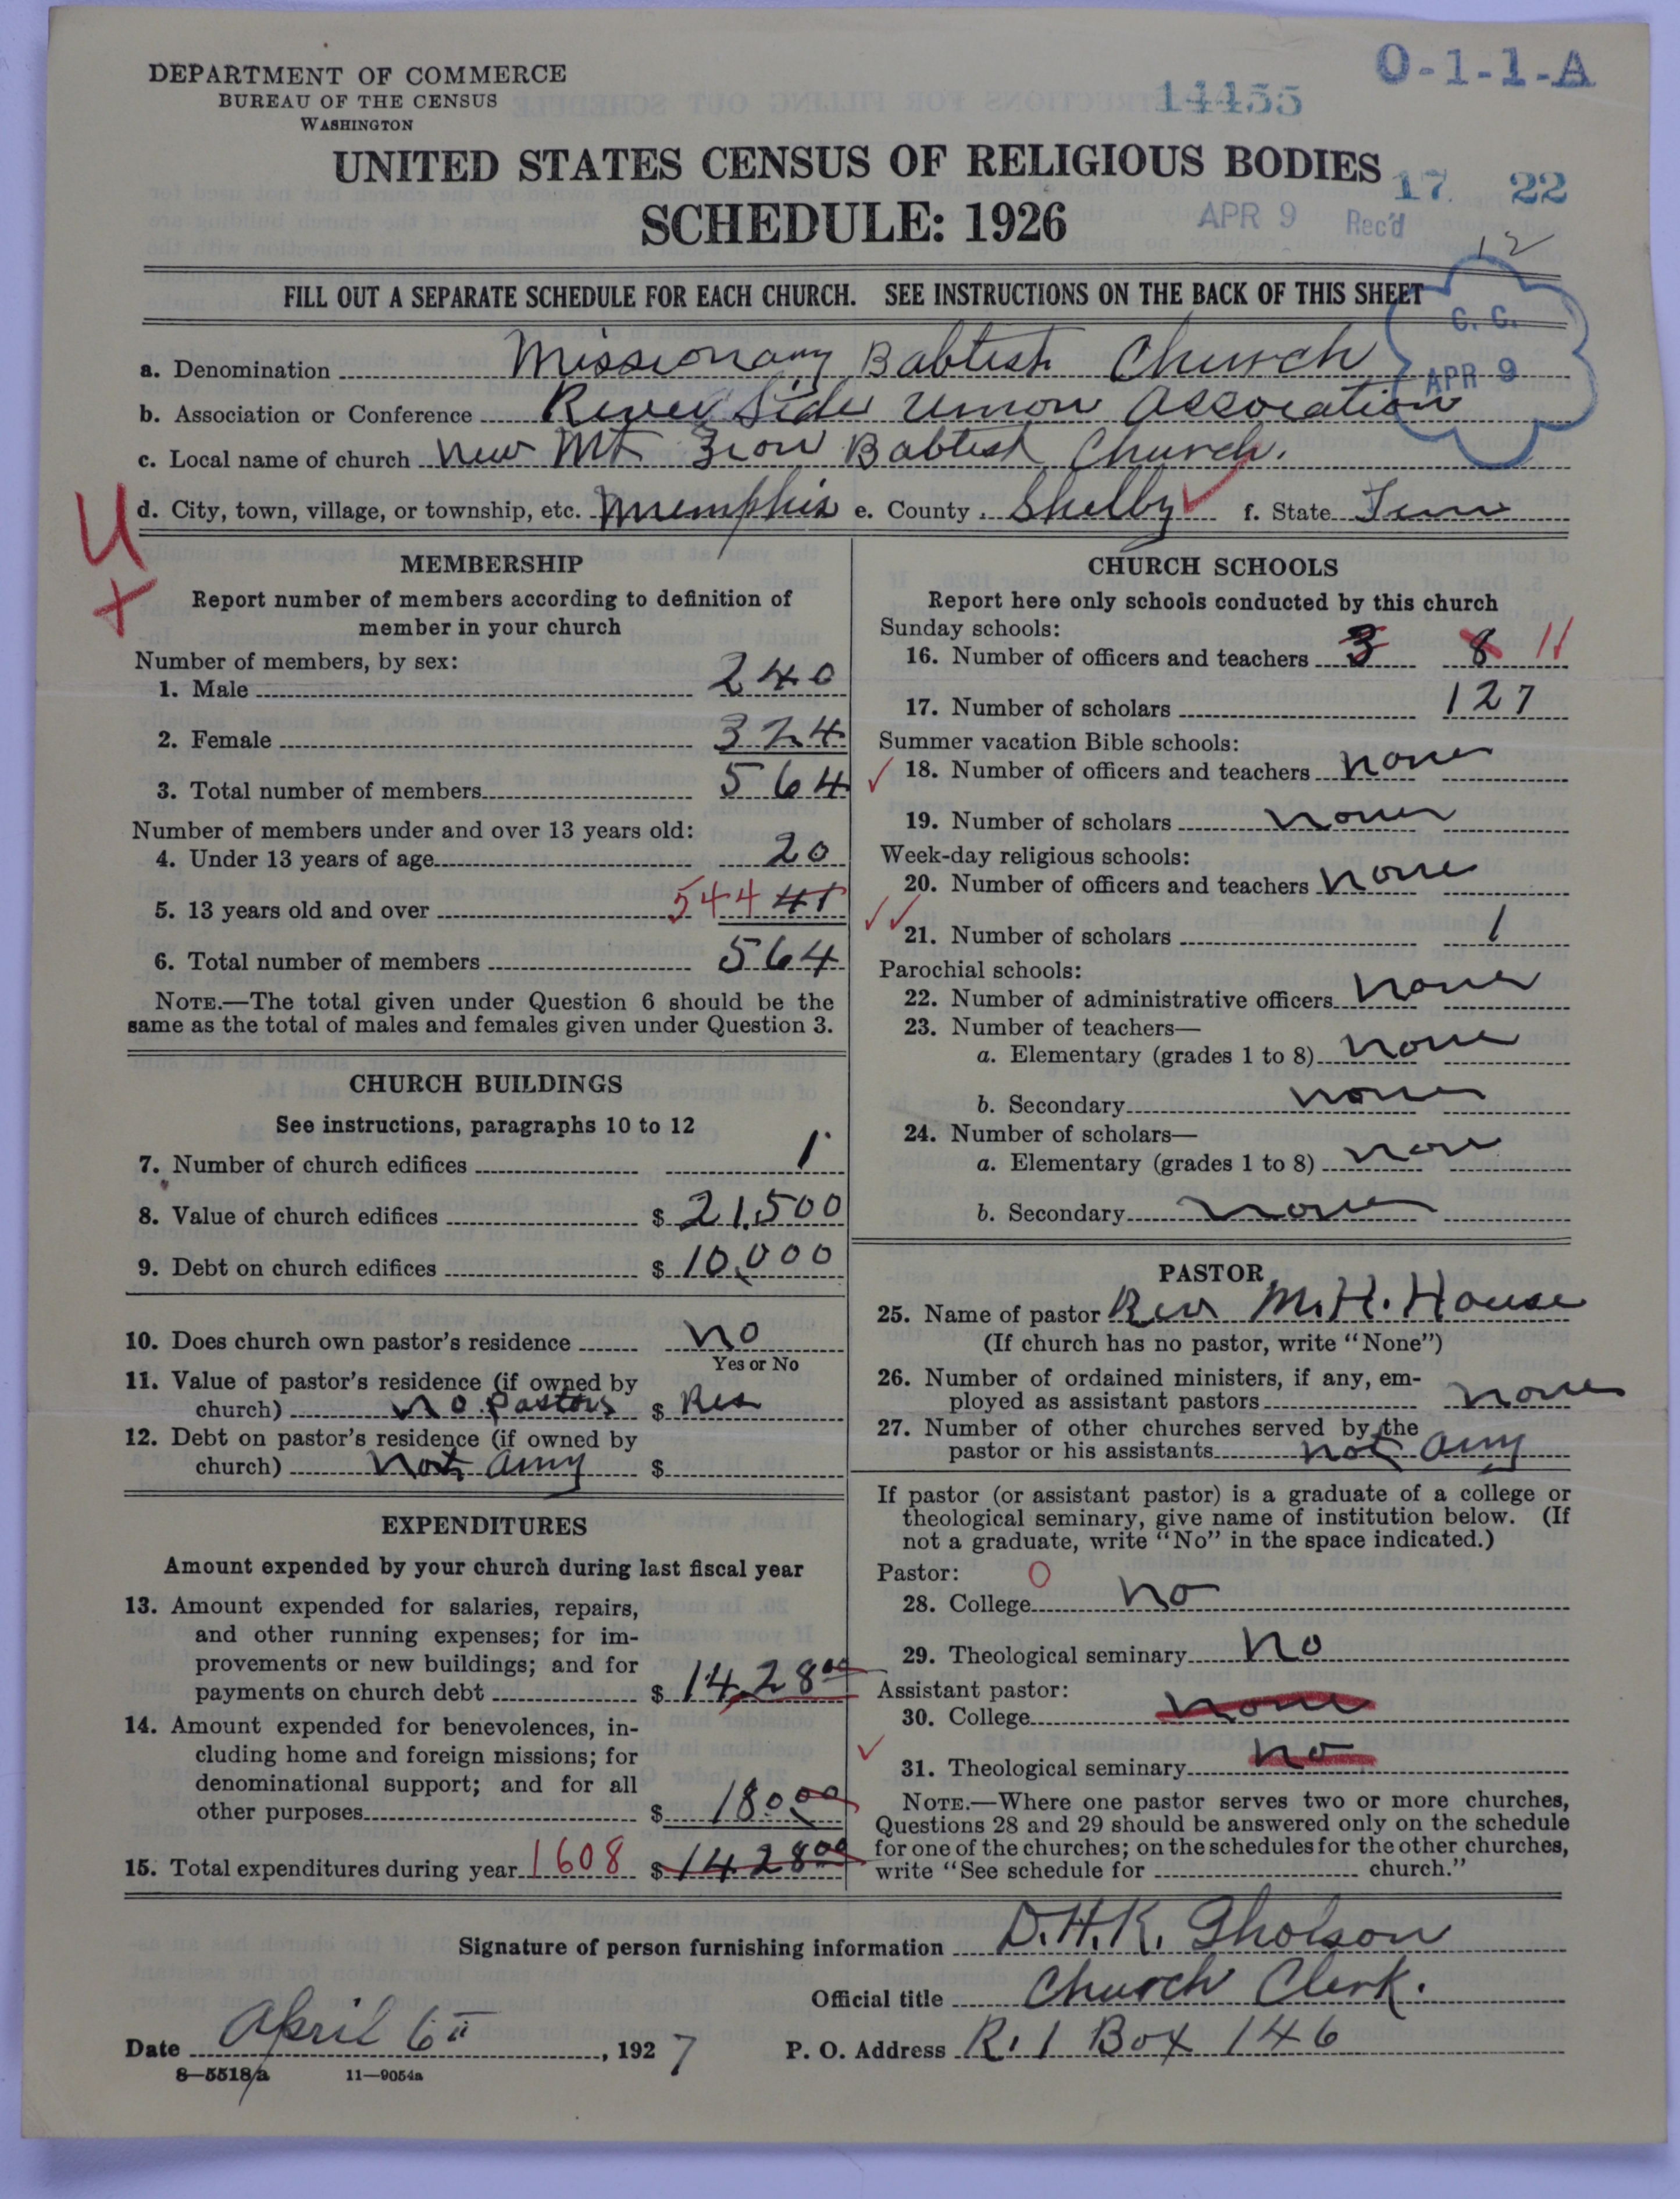 DEPARTMENT OF COMMERCE
BUREAU OF THE CENSUS
WASHINGTON
O-1-1-A
14455
UNITED STATES CENSUS OF RELIGIOUS BODIES
17 22
SCHEDULE: 1926
APR 9 Rec'd
12
FILL OUT A SEPARATE SCHEDULE FOR EACH CHURCH. SEE INSTRUCTIONS ON THE BACK OF THIS SHEET
C. C.
APR 9
a. Denomination Missionary Babtist Church
b. Association or Conference River Side Union Association
c. Local name of church New Mt Zion Babtist Church.
d. City, town, village, or township, etc. Memphis e. County Shelby f. State Tenn
MEMBERSHIP
Report number of members according to definition of
member in your church
Number of members, by sex:
1. Male 240
2. Female 324
3. Total number of members 564
Number of members under and over 13 years old:
4. Under 13 years of age 20
5. 13 years old and over 544 41
6. Total number of members 564
NOTE.—The total given under Question 6 should be the
same as the total of males and females given under Question 3.
CHURCH BUILDINGS
See instructions, paragraphs 10 to 12
7. Number of church edifices 1
8. Value of church edifices $ 21,500
9. Debt on church edifices $ 10,000
10. Does church own pastor's residence No
Yes or No
11. Value of pastor's residence (if owned by
church) no Pastors $ Res
12. Debt on pastor's residence (if owned by
church) Not any $
EXPENDITURES
Amount expended by your church during last fiscal year
13. Amount expended for salaries, repairs,
and other running expenses; for im-
provements or new buildings; and for
payments on church debt $ 1428 00
14. Amount expended for benevolences, in-
cluding home and foreign missions; for
denominational support; and for all
other purposes $ 180.00
15. Total expenditures during year 1608 $ 1428 00
CHURCH SCHOOLS
Report here only schools conducted by this church
Sunday schools:
16. Number of officers and teachers 3 8 11
17. Number of scholars 127
Summer vacation Bible schools:
18. Number of officers and teachers none
19. Number of scholars none
Week-day religious schools:
20. Number of officers and teachers none
21. Number of scholars 1
Parochial schools:
22. Number of administrative officers none
23. Number of teachers—
a. Elementary (grades 1 to 8) none
b. Secondary none
24. Number of scholars—
a. Elementary (grades 1 to 8) none
b. Secondary none
PASTOR
25. Name of pastor Rev M.H. House
(If church has no pastor, write "None")
26. Number of ordained ministers, if any, em-
ployed as assistant pastors none
27. Number of other churches served by the
pastor or his assistants not any
If pastor (or assistant pastor) is a graduate of a college or
theological seminary, give name of institution below. (If
not a graduate, write "No" in the space indicated.)
Pastor: O
28. College No
29. Theological seminary No
Assistant pastor:
30. College none
31. Theological seminary no
NOTE.—Where one pastor serves two or more churches,
Questions 28 and 29 should be answered only on the schedule
for one of the churches; on the schedules for the other churches,
write "See schedule for church."
Signature of person furnishing information D.H.K. Gholson
Official title Church Clerk.
Date April 6th, 1927 P. O. Address R.1 Box 146
8-5518a 11-9054a